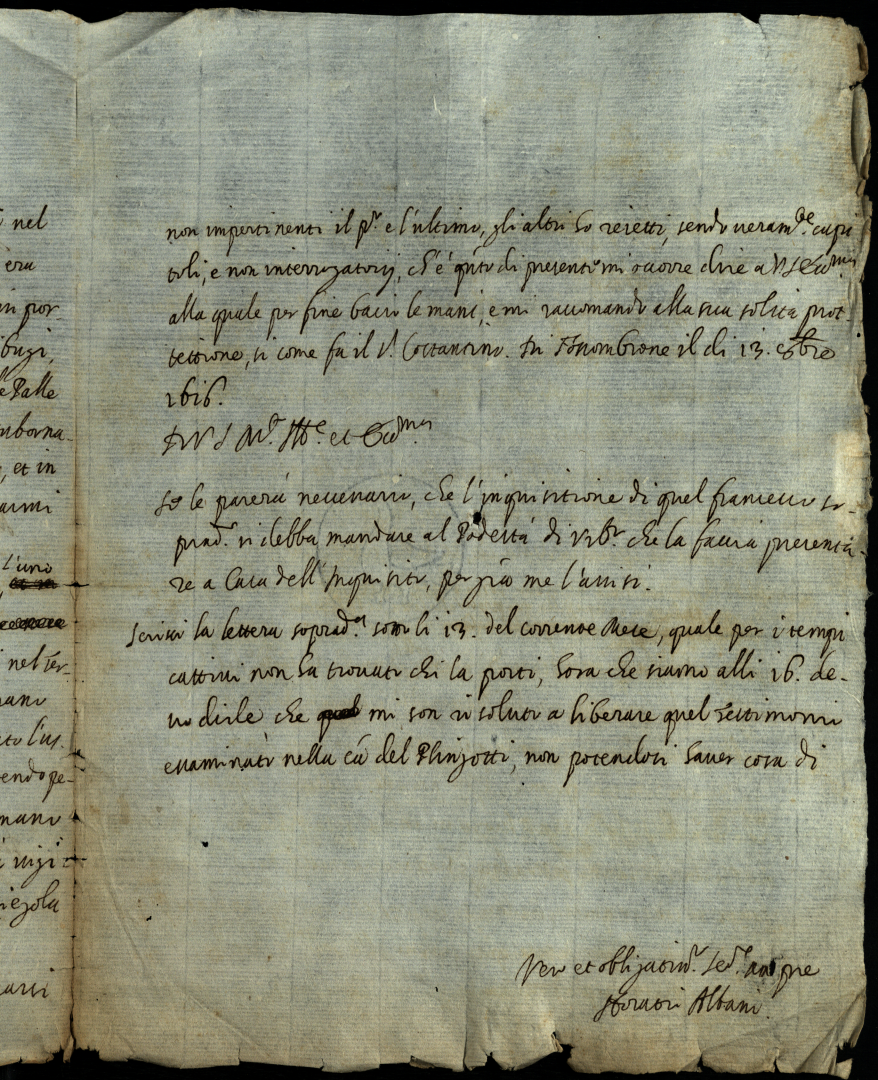 nel
era
in por-
bugi,
e Palle
uborna-
, et in
armi
l'uno
nel ter-
mano
endo pe-
mano
non impertinenti il p.º e l'ultimo, gli altri ho reietti, sendo veram.te capi
toli, e non interrogatorij, ch'è q.nto di presente mi occorre dire a V S Ecc.ma
alla quale per fine bacio le mani, e mi raccomando alla sua solita prot-
tettione, si come fa il s.r Costantino. Di Fossombrone il di 13. Xbre
1616.
Di V S M.to Ill.e et Ecc.ma
Se le parerà necessario, che l'inquisitione di quel francesco so-
prad.º si debba mandare al Podestà di che la faccia presenta-
re a Casa dell'Inquisito, per gra me l'avvisi.
Scrissi la lettera soprad.a sotto li 13. del corrente Mese, quale per i tempi
cattivi non ha trovato chi la porti, hora che siamo alli 16. de-
vo dirle che mi son risoluto a liberare quel testimonii
essaminati nella cã del Plinzotti, non potendosi haver cosa di
Ser.re
Horatio Albani.